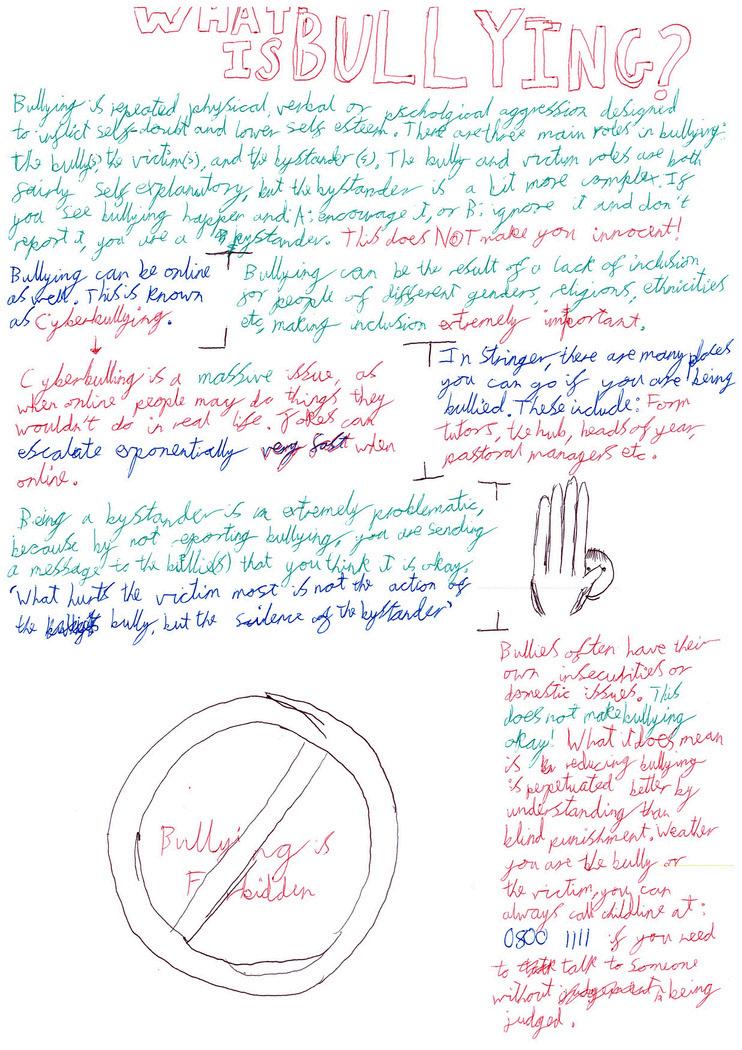 WHAT
IS BULLYING?
Bullying is repeated, physical, verbal or pscholgical aggression designed
to inflict self-doubt and lower self esteem. There are three main roles in bullying:
the bully(s), the victim(s), and the bystander(s). The bully and victim roles are both
fairly self explanatory, but the bystander is a bit more complex. If
you see bullying happen and: A: encourage it, or B: ignore it and don't
report it, you are a bystander. This does NOT make you innocent!
Bullying can be online
as well. This is known
as Cyberbullying.
Bullying can be the result of a lack of inclusion
for people of different genders, religions, ethnicities
etc, making inclusion extremely important.
Cyberbulling is a massive issue, as
when online people may do things they
wouldn't do in real life. Jokes can
escalate exponentially very fast when
online.
In Stringer, there are many places
you can go if you are being
bullied. These include: Form
tutors, the hub, heads of year,
pastoral managers etc.
Being a bystander is extremely problematic,
because by not reporting bullying, you are sending
a message to the bullie(s) that you think it is okay.
'What hurts the victim most is not the action of
the bully, but the silence of the bystander'
Bullies often have their
own insecurities or
domestic issues. This
does not make bullying
okay! What it does mean
is reducing bullying
is perpetuated better by
understanding than
blind punishment. Weather
you are the bully or
the victim, you can
always call childline at:
0800 1111 if you need
to talk to someone
without being
judged.
Bullying is
Forbidden